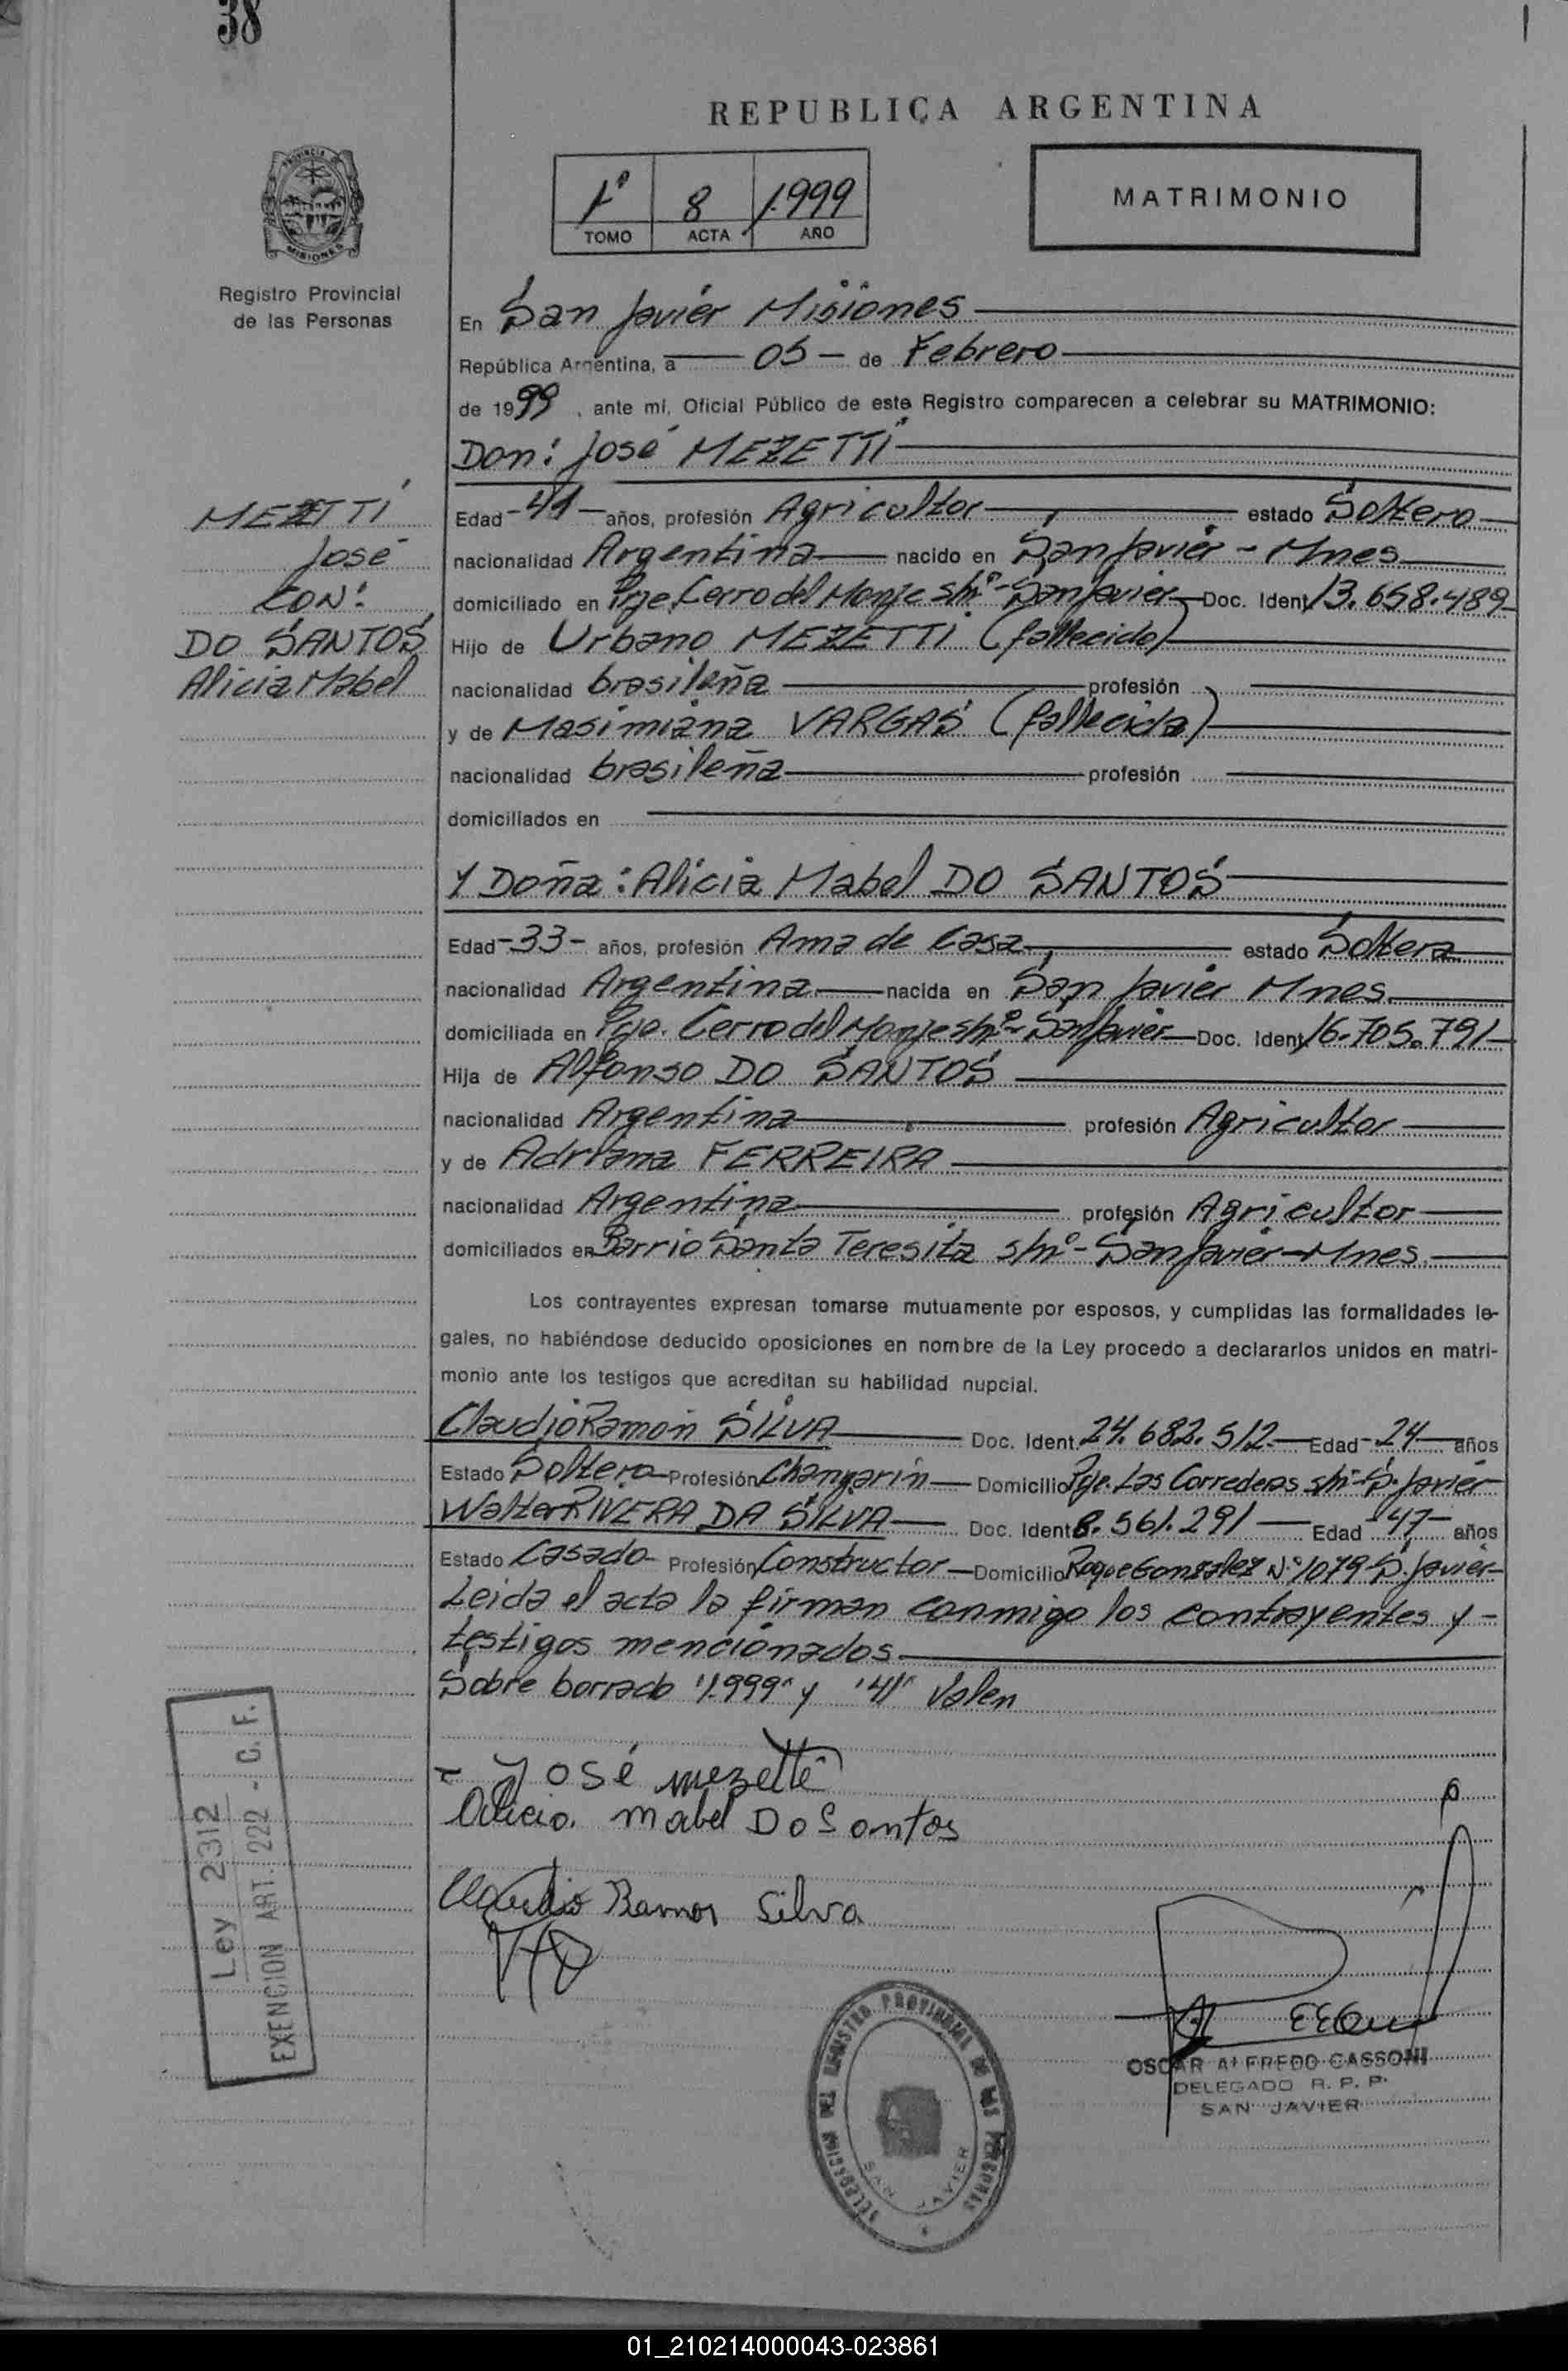 38
REPUBLICA ARGENTINA
1º 8 1.999
TOMO ACTA AÑO
MATRIMONIO
PROVINCIA
MISIONES
Registro Provincial
de las Personas
En San Javier Misiones
República Argentina, a 05 de Febrero
de 1999, ante mí, Oficial Público de este Registro comparecen a celebrar su MATRIMONIO:
Don: José MEZETTI
MEZETTI
José
CON:
DO SANTOS
Alicia Mabel
Edad -41- años, profesión Agricultor estado Soltero
nacionalidad Argentina nacido en San Javier - Mnes
domiciliado en Pje. Cerro del Monje s/nº - San Javier Doc. Ident. 13.658.489
Hijo de Urbano MEZETTI (fallecido)
nacionalidad brasileña profesión
y de Masimiana VARGAS (fallecida)
nacionalidad brasileña profesión
domiciliados en
Y Doña: Alicia Mabel DO SANTOS
Edad -33- años, profesión Ama de Casa estado Soltera
nacionalidad Argentina nacida en San Javier Mnes
domiciliada en Pje. Cerro del Monje s/nº - San Javier Doc. Ident. 16.705.791
Hija de Alfonso DO SANTOS
nacionalidad Argentina profesión Agricultor
y de Adriana FERREIRA
nacionalidad Argentina profesión Agricultor
domiciliados en Barrio Santa Teresita s/nº - San Javier - Mnes.
Los contrayentes expresan tomarse mutuamente por esposos, y cumplidas las formalidades le-
gales, no habiéndose deducido oposiciones en nombre de la Ley procedo a declararlos unidos en matri-
monio ante los testigos que acreditan su habilidad nupcial.
Claudio Ramón SILVA Doc. Ident. 24.682.512 Edad -24- años
Estado Soltero Profesión Changarin Domicilio Pje. Las Correderas s/nº - S. Javier
Walter RIVERA DA SILVA Doc. Ident. 8.561.291 Edad 47 años
Estado Casado Profesión Constructor Domicilio Roque Gonzalez Nº 1079 - S. Javier
Leida el acta la firman conmigo los contrayentes y -
testigos mencionados.
Sobre borrado "1.999" y "41" Valen
José mezetti
Alicia mabel Do Santos
Claudio Ramon Silva
Ley 2312
EXENCION ART. 222 - C. F.
DELEGACION DEL REGISTRO PROVINCIAL DE LAS PERSONAS
SAN JAVIER
OSCAR ALFREDO CASSONI
DELEGADO R. P. P.
SAN JAVIER
01_210214000043-023861